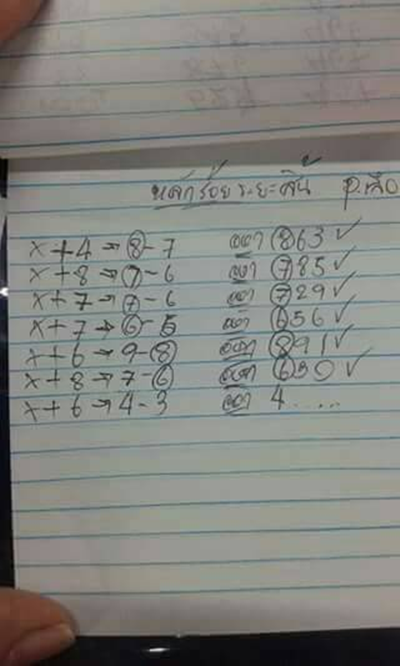 หลักร้อยระยะสั้น P.เสือ
x + 4 → 8 - 7 ออก 863 ✓
x + 8 → 7 - 6 ออก 785 ✓
x + 7 → 7 - 6 ออก 729 ✓
x + 7 → 6 - 5 ออก 656 ✓
x + 6 → 9 - 8 ออก 891 ✓
x + 8 → 7 - 6 ออก 630 ✓
x + 6 → 4 - 3 ออก 4.....